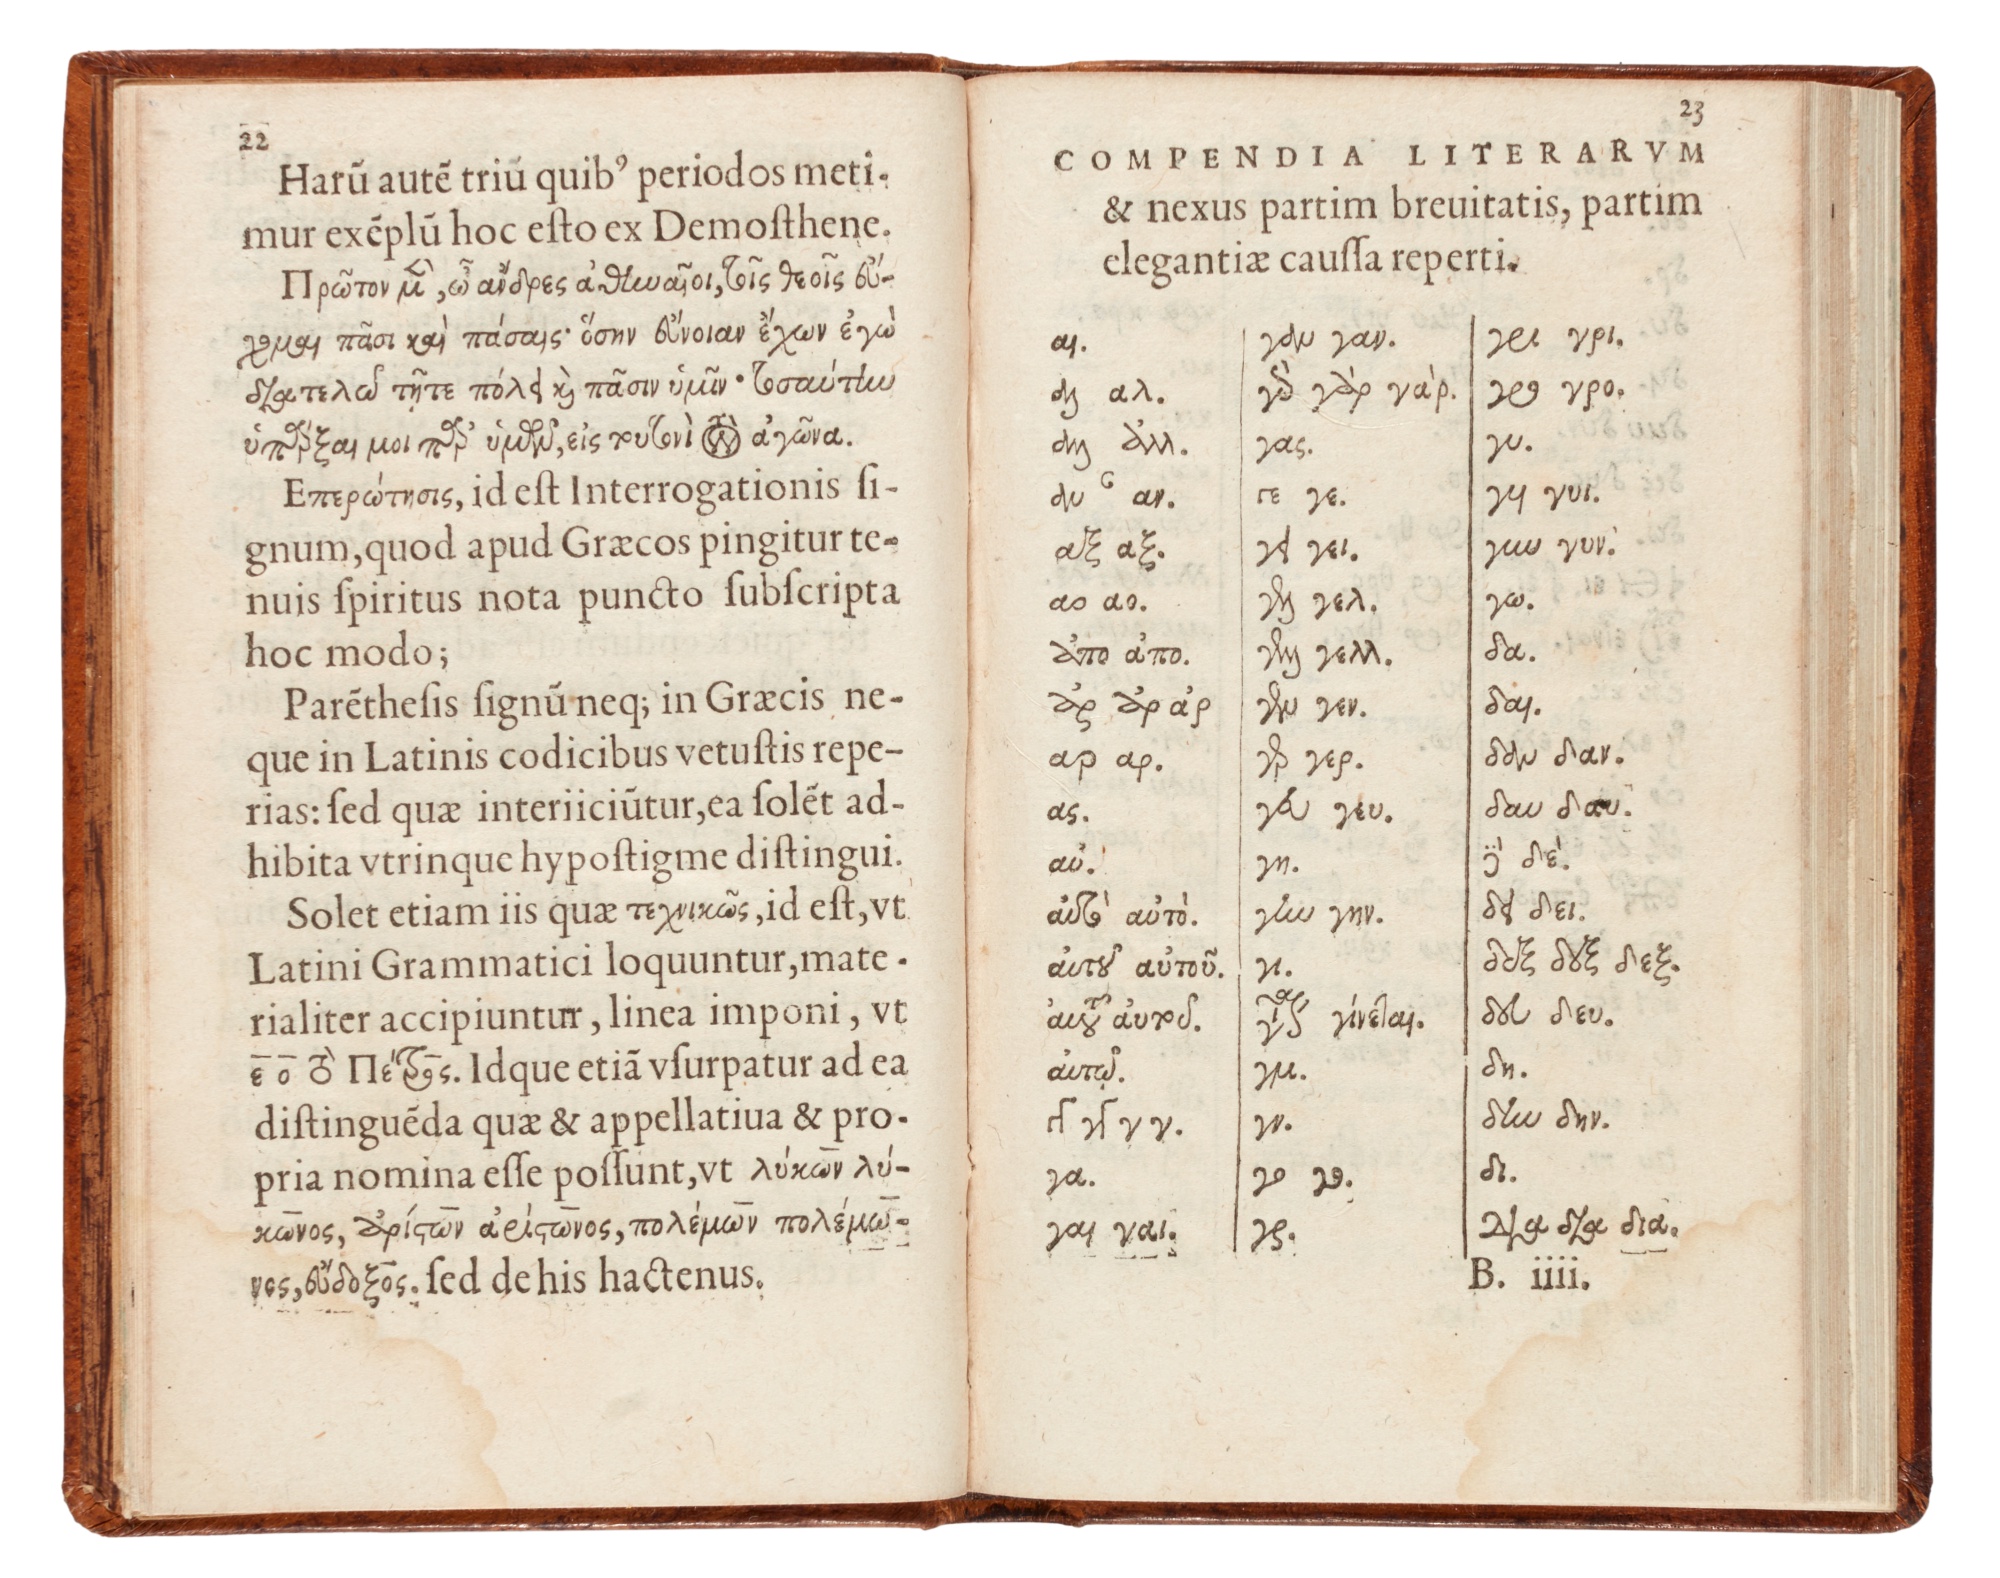 22
Harũ autẽ triũ quibꝰ periodos meti-
mur exẽplũ hoc esto ex Demosthene.
Πρῶτον μὲν, ὦ ἄνδρες ἀθηναῖοι, τοῖς θεοῖς εὔ-
χομαι πᾶσι καὶ πάσαις· ὅσην εὔνοιαν ἔχων ἐγὼ
διατελῶ τῆτε πόλει καὶ πᾶσιν ὑμῖν· τοσαύτην
ὑπάρξαι μοι παρ' ὑμῶν, εἰς τουτονὶ τὸν ἀγῶνα.
Επερώτησις, id est Interrogationis si-
gnum, quod apud Græcos pingitur te-
nuis spiritus nota puncto subscripta
hoc modo;
Parẽthesis signũ neq; in Græcis ne-
que in Latinis codicibus vetustis repe-
rias: sed quæ interiiciũtur, ea solẽt ad-
hibita vtrinque hypostigme distingui.
Solet etiam iis quæ τεχνικῶς, id est, vt
Latini Grammatici loquuntur, mate-
rialiter accipiuntur, linea imponi, vt
ε̄ ο̄ τὸ Πέτρο̄ς. Idque etiã vsurpatur ad ea
distinguẽda quæ & appellatiua & pro-
pria nomina esse possunt, vt λύκω̄ν λύ-
κω̄νος, ἀρίστω̄ν ἀρίστω̄νος, πολέμω̄ν πολέμω̄-
νος, εὔδοξο̄ς. sed de his hactenus.
23
COMPENDIA LITERARVM
& nexus partim breuitatis, partim
elegantiæ caussa reperti.
αι.
αλ αλ.
αλλ ἀλλ.
αν αν.
αξ αξ.
αο αο.
ἀπο ἀπο.
ἀρ ἀρ ἀρ
αρ αρ.
ας.
αὐ.
αὐτὸ αὐτὸ.
αὐτοῦ αὐτοῦ.
αὐτοῦ ἀυτοῦ.
ἀυτῷ.
γγ γγ γγ.
γα.
γαι γαι.
γαν γαν.
γὰρ γὰρ γὰρ.
γας.
γε γε.
γει γει.
γελ γελ.
γελλ γελλ.
γεν γεν.
γερ γερ.
γευ γευ.
γη.
γην γην.
γι.
γίνεται γίνεται.
γμ.
γν.
γο γο.
γρ.
γρι γρι.
γρο γρο.
γυ.
γυι γυι.
γυν γυν.
γω.
δα.
δαι.
δαν δαν.
δαυ δαυ.
δὲ δὲ.
δει δει.
δεξ δεξ δεξ.
δευ δευ.
δη.
δην δην.
δι.
δια δια δια.
B. iiii.